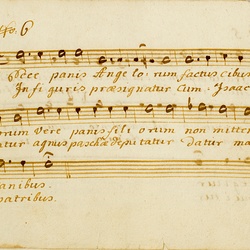 6
Ecce panis Ange lo rum factus cibus
In fi guris præsignatur Cum Isaac
orum Vere panis fili orum non mitten
atur agnus paschæ deputatur datur ma
canibus.
patribus.